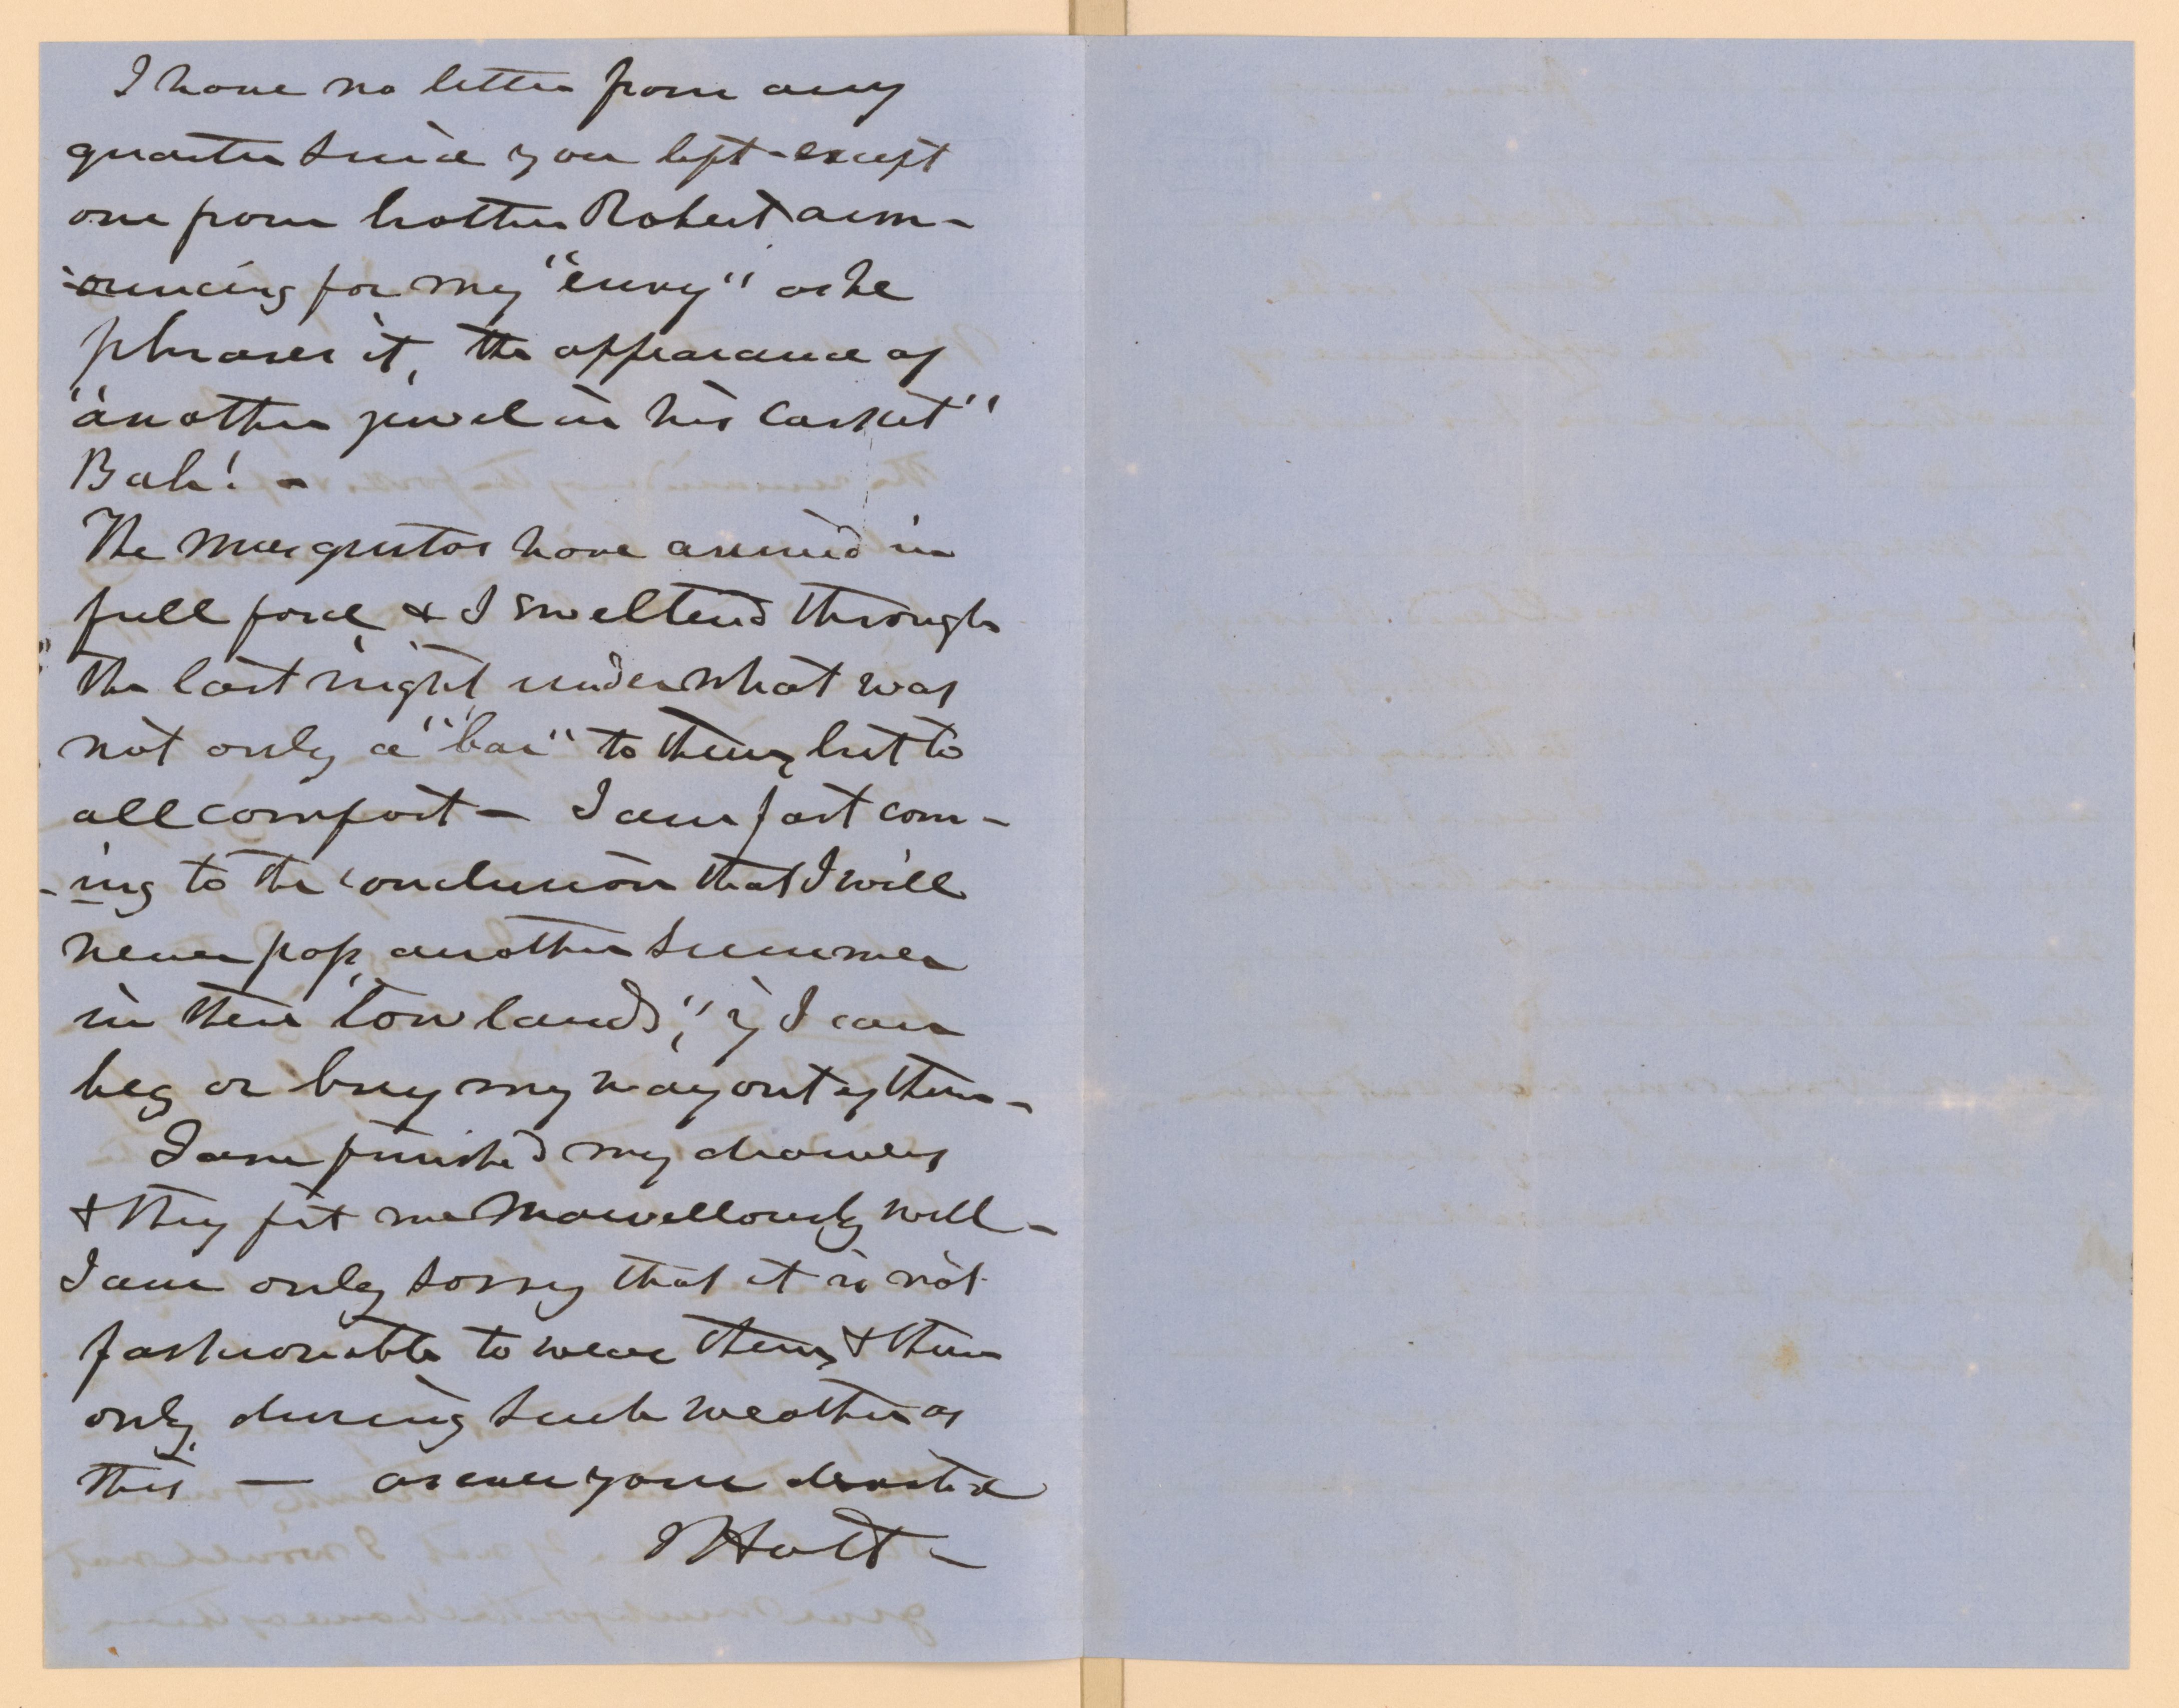 I have no letter from any
quarter since you left - except
one from brother Robert ann-
-ouncing for my "envy" as he
phrases it, the appearance of
"another jewel in his casket"
Bah! -
The musquitos have arrived in
full force & I sweltered through
the last night, under what was
not only a "bar" to them, but to
all comfort - I am fast com-
-ing to the conclusion that I will
never pass another summer
in these "low lands," if I can
beg or buy my way out of them -
I am furnished my drawers
& they fit me marvellously well -
I am only sorry that it is not
fashionable to wear them, & them
only, during such weather as
this - as ever your devoted
J Holt -